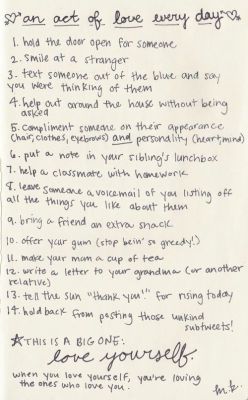 an act of love every day
1. hold the door open for someone
2. smile at a stranger
3. text someone out of the blue and say
you were thinking of them
4. help out around the house without being
asked
5. compliment someone on their appearance
(hair, clothes, eyebrows) and personality (heart, mind)
6. put a note in your sibling's lunchbox
7. help a classmate with homework
8. leave someone a voicemail of you listing off
all the things you like about them
9. bring a friend an extra snack
10. offer your gum (stop bein' so greedy!)
11. make your mom a cup of tea
12. write a letter to your grandma (or another
relative)
13. tell the sun "thank you!" for rising today
14. hold back from posting those unkind
subtweets!
THIS IS A BIG ONE:
love yourself.
when you love yourself, you're loving
the ones who love you.